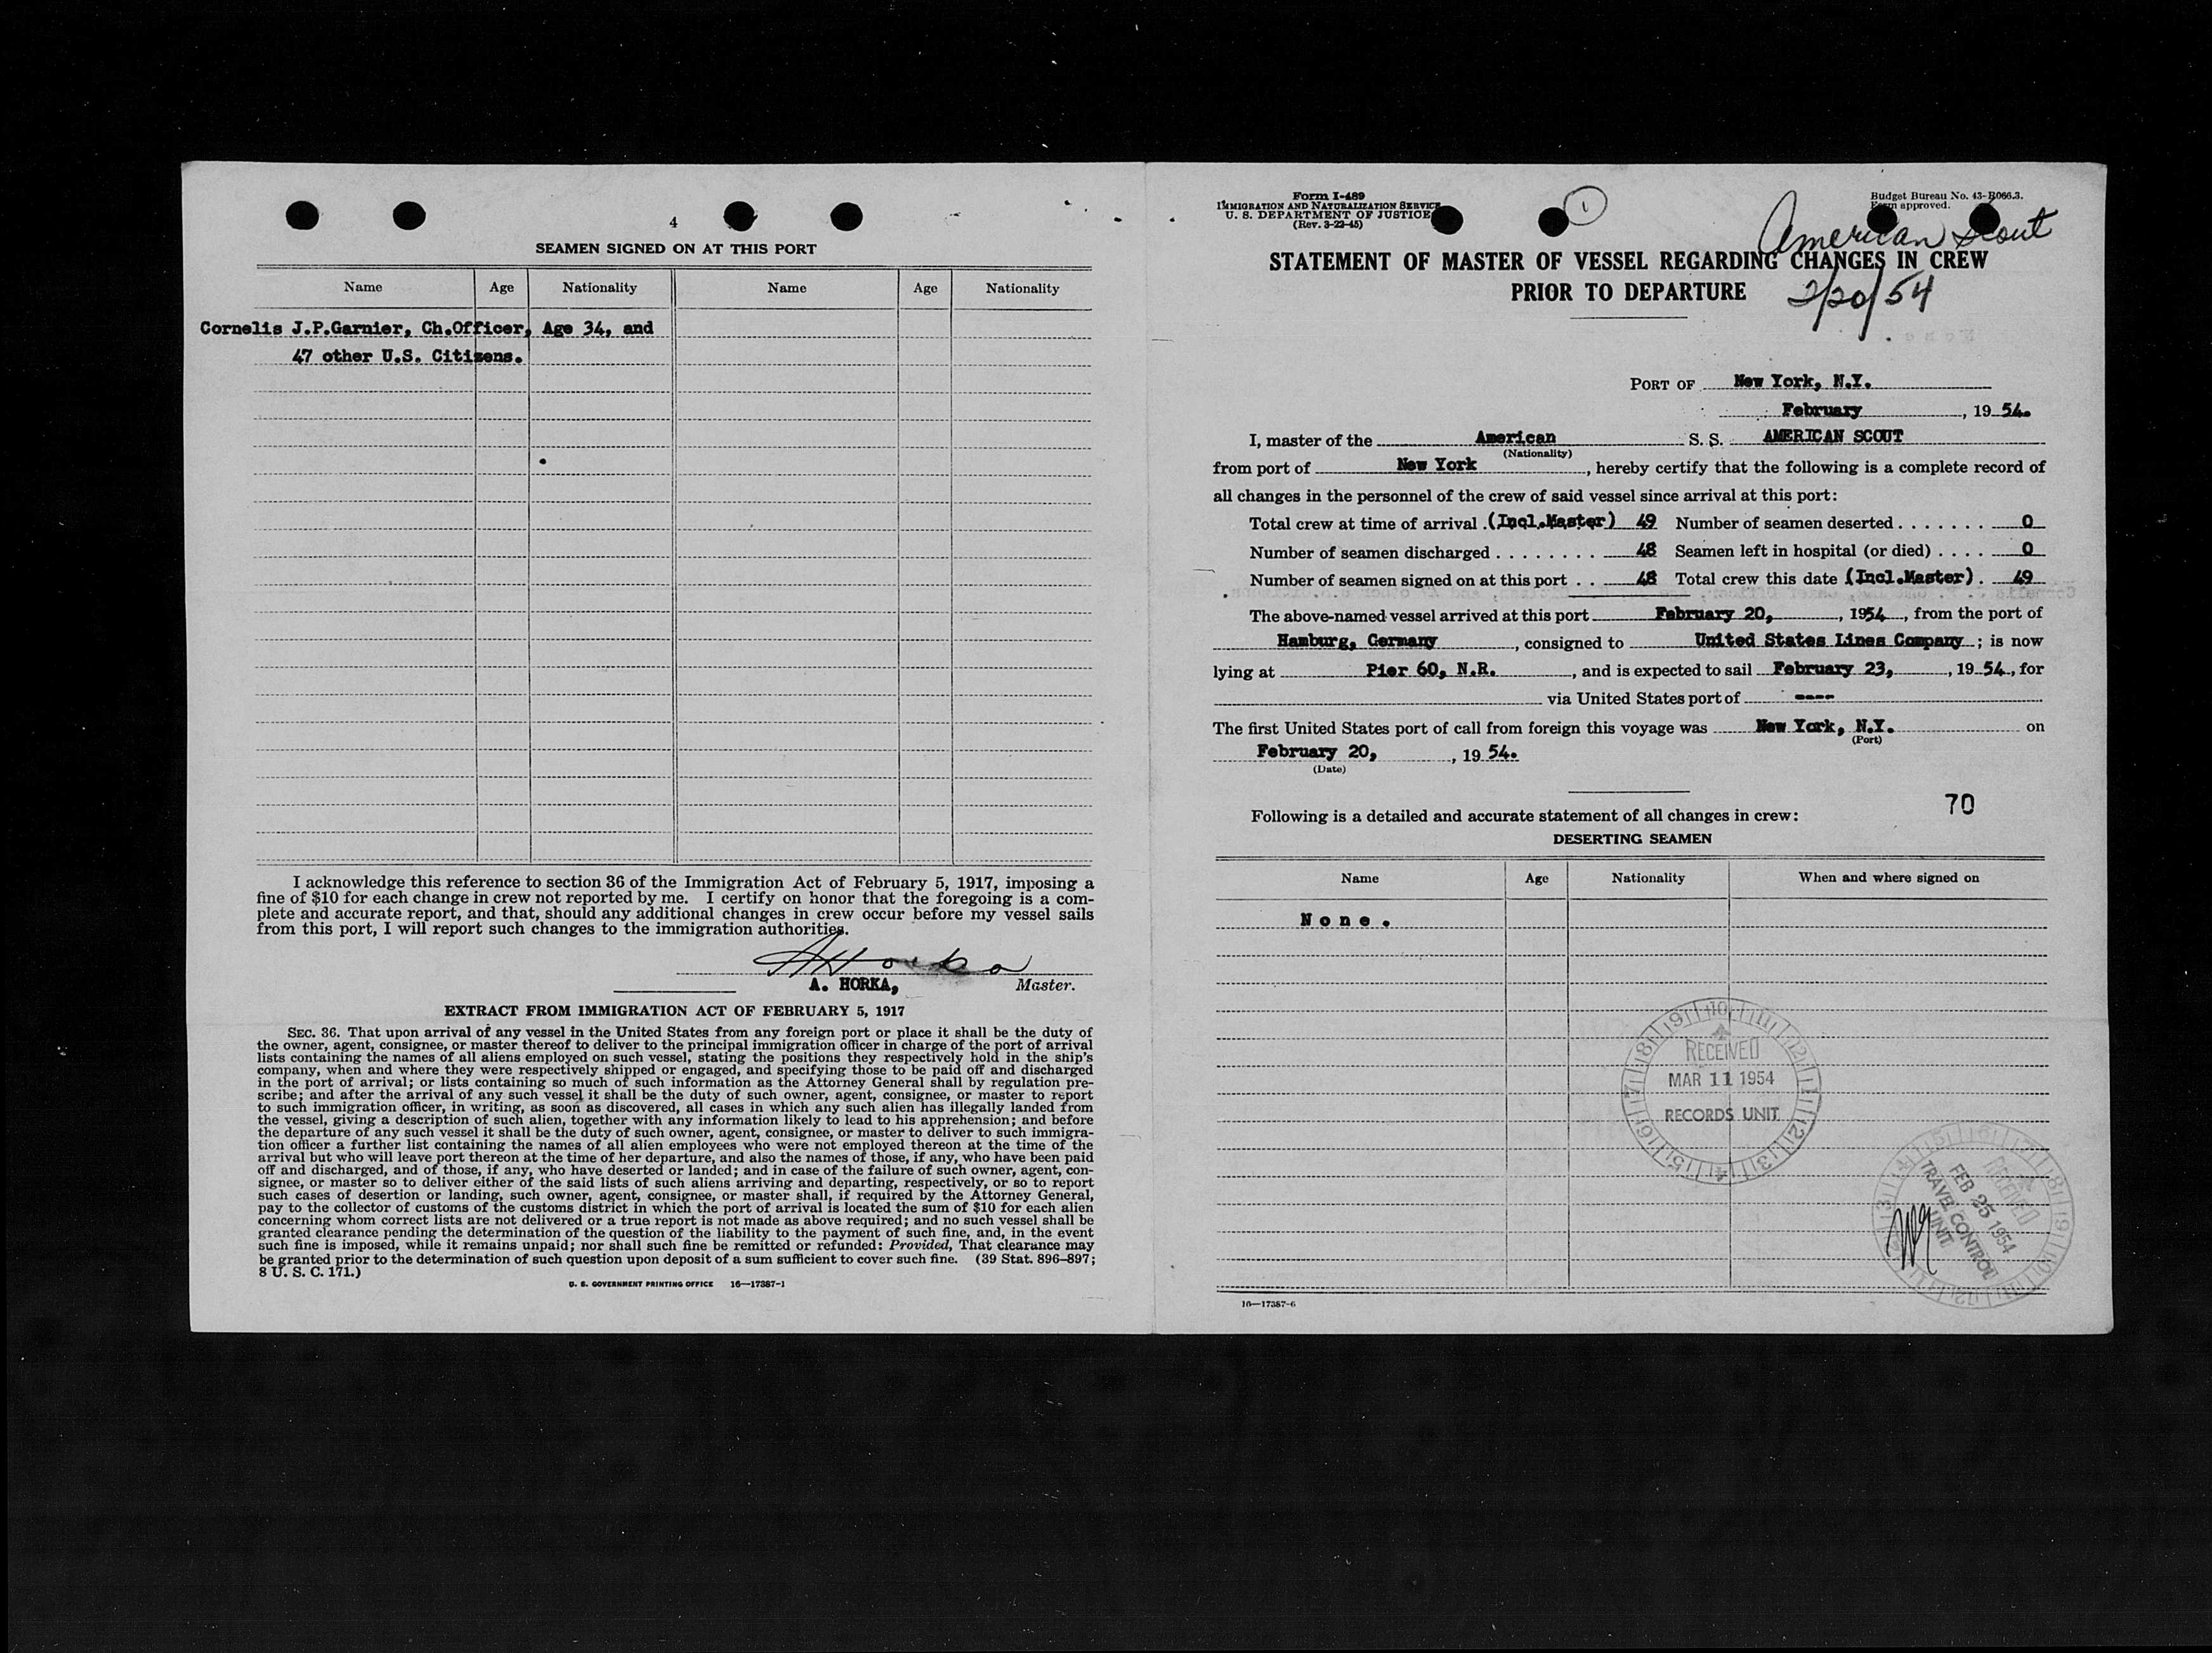 4
SEAMEN SIGNED ON AT THIS PORT
Name Age Nationality Name Age Nationality
Cornelis J.P.Garnier, Ch.Officer, Age 34, and
47 other U.S. Citizens.
I acknowledge this reference to section 36 of the Immigration Act of February 5, 1917, imposing a
fine of $10 for each change in crew not reported by me. I certify on honor that the foregoing is a com-
plete and accurate report, and that, should any additional changes in crew occur before my vessel sails
from this port, I will report such changes to the immigration authorities.
A Horka
A. HORKA, Master.
EXTRACT FROM IMMIGRATION ACT OF FEBRUARY 5, 1917
SEC. 36. That upon arrival of any vessel in the United States from any foreign port or place it shall be the duty of
the owner, agent, consignee, or master thereof to deliver to the principal immigration officer in charge of the port of arrival
lists containing the names of all aliens employed on such vessel, stating the positions they respectively hold in the ship's
company, when and where they were respectively shipped or engaged, and specifying those to be paid off and discharged
in the port of arrival; or lists containing so much of such information as the Attorney General shall by regulation pre-
scribe; and after the arrival of any such vessel it shall be the duty of such owner, agent, consignee, or master to report
to such immigration officer, in writing, as soon as discovered, all cases in which any such alien has illegally landed from
the vessel, giving a description of such alien, together with any information likely to lead to his apprehension; and before
the departure of any such vessel it shall be the duty of such owner, agent, consignee, or master to deliver to such immigra-
tion officer a further list containing the names of all alien employees who were not employed thereon at the time of the
arrival but who will leave port thereon at the time of her departure, and also the names of those, if any, who have been paid
off and discharged, and of those, if any, who have deserted or landed; and in case of the failure of such owner, agent, con-
signee, or master so to deliver either of the said lists of such aliens arriving and departing, respectively, or so to report
such cases of desertion or landing, such owner, agent, consignee, or master shall, if required by the Attorney General,
pay to the collector of customs of the customs district in which the port of arrival is located the sum of $10 for each alien
concerning whom correct lists are not delivered or a true report is not made as above required; and no such vessel shall be
granted clearance pending the determination of the question of the liability to the payment of such fine, and, in the event
such fine is imposed, while it remains unpaid; nor shall such fine be remitted or refunded: Provided, That clearance may
be granted prior to the determination of such question upon deposit of a sum sufficient to cover such fine. (39 Stat. 896–897;
8 U. S. C. 171.)
U. S. GOVERNMENT PRINTING OFFICE 16—17387-1
Form I-489
IMMIGRATION AND NATURALIZATION SERVICE
U. S. DEPARTMENT OF JUSTICE
(Rev. 3-22-45)
1
Budget Bureau No. 43-R066.3.
Form approved.
American Scout
STATEMENT OF MASTER OF VESSEL REGARDING CHANGES IN CREW
PRIOR TO DEPARTURE
2/20/54
PORT OF New York, N.Y.
February, 19 54.
I, master of the American S. S. AMERICAN SCOUT
(Nationality)
from port of New York, hereby certify that the following is a complete record of
all changes in the personnel of the crew of said vessel since arrival at this port:
Total crew at time of arrival (Incl.Master) 49 Number of seamen deserted . . . . . . . 0
Number of seamen discharged . . . . . . . . 48 Seamen left in hospital (or died) . . . . 0
Number of seamen signed on at this port . . 48 Total crew this date (Incl.Master). 49
The above-named vessel arrived at this port February 20, , 1954, from the port of
Hamburg, Germany, consigned to United States Lines Company; is now
lying at Pier 60, N.R., and is expected to sail February 23, , 19 54, for
via United States port of ----
The first United States port of call from foreign this voyage was New York, N.Y. on
(Port)
February 20, , 19 54.
(Date)
70
Following is a detailed and accurate statement of all changes in crew:
DESERTING SEAMEN
Name Age Nationality When and where signed on
None.
RECEIVED
MAR 11 1954
RECORDS UNIT
RECEIVED
FEB 25 1954
TRAVEL CONTROL
UNIT
16—17387-6